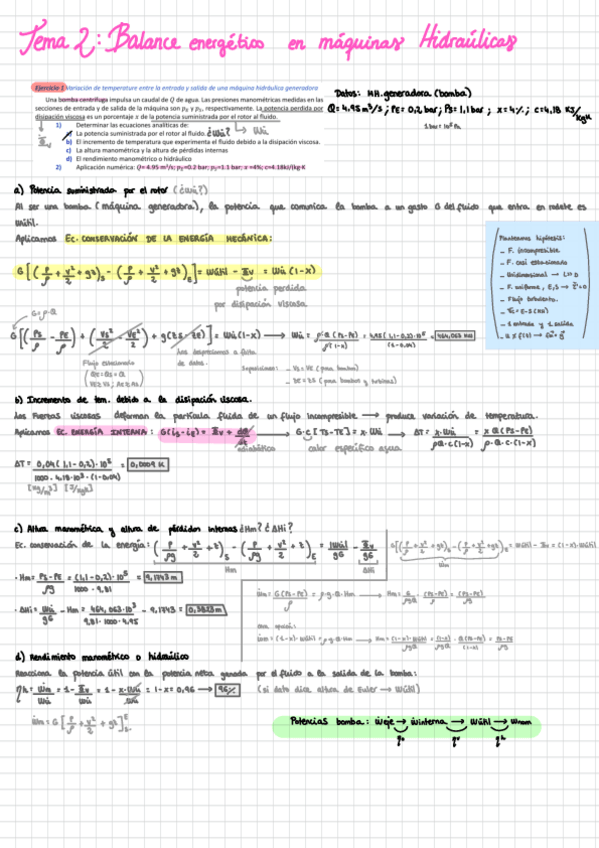 Tema 2: Balance energético en máquinas Hidraúlicas
Ejercicio 1 Variación de temperature entre la entrada y salida de una máquina hidráulica generadora
Una bomba centrífuga impulsa un caudal de Q de agua. Las presiones manométricas medidas en las
secciones de entrada y de salida de la máquina son pE y pS, respectivamente. La potencia perdida por
disipación viscosa es un porcentaje x de la potencia suministrada por el rotor al fluido.
1) Determinar las ecuaciones analíticas de:
La potencia suministrada por el rotor al fluido. ¿Ẇu?
b) El incremento de temperatura que experimenta el fluido debido a la disipación viscosa.
c) La altura manométrica y la altura de pérdidas internas
d) El rendimiento manométrico o hidráulico
2) Aplicación numérica: Q= 4.95 m³/s; pE=0.2 bar; pS=1.1 bar; x =4%; c=4.18kJ/(kg·K
Datos: MH.generadora (bomba)
Q= 4.95 m³/s ; PE= 0,2 bar; PS= 1,1 bar ; x = 4% ; c=4,18 KJ/KgK
1 bar = 10⁵ Pa
a) Potencia suministrada por el rotor (¿ẇu?)
Al ser una bomba (máquina generadora), la potencia que comunica la bomba a un gasto G del fluido que entra en rodete es
wútil.
Aplicamos Ec. CONSERVACIÓN DE LA ENERGÍA MECÁNICA:
G[(P/ρ + v²/2 + gz)S - (P/ρ + v²/2 + gz)E] = wútil - Φv = ẇu (1-x)
potencia perdida
por disipación viscosa.
Planteamos hipótesis:
- F. incompresible
- F. casi estacionario
- Unidireccional → L>>D
- F. uniforme, E,S
- Flujo turbulento.
- 1 entrada y 1 salida
G = ρ·Q
G[(PS/ρ - PE/ρ) + (vS²/2 - vE²/2) + g(zS-zE)] = ẇu(1-x) → ẇu = ρ·Q (PS-PE)/ρ(1-x) = 4,95(1,1-0,2)·10⁵/(1-0,04) = 464,063 kW
Flujo estacionario
QE = QS = Q
las despreciamos a falta
de datos.
Suposiciones: - vS = vE (para bombas)
- zE = zS (para bombas y turbinas)
b) Incremento de tem. debido a la disipación viscosa.
Las Fuerzas viscosas deforman la partícula fluida de un flujo incompresible → produce variación de temperatura.
Aplicamos EC. ENERGÍA INTERNA: G(iS-iE) = Φv + dQ/dt → G·c[TS-TE] = x·ẇu → ΔT = x·ẇu/ρQ·c = x Q(PS-PE)/ρ·Q·c·(1-x)
adiabático
calor específico agua.
ΔT = 0,04(1,1-0,2)·10⁵/1000·4.18·10³·(1-0,04) = 0,0009 K
[kg/m³] [J/kgK]
c) Altura manométrica y altura de pérdidas internas ¿Hm? ¿ΔHi?
Ec. conservación de la energía: (P/ρg + v²/2 + z)S - (P/ρg + v²/2 + z)E = |wútil|/gG - Φv/gG
Hm
ΔHi
G[(P/ρ + v²/2 + gz)S - (P/ρ + v²/2 + gz)E] = wútil - Φv = (1-x)·wútil
ẇm
· Hm = PS-PE/ρg = (1,1-0,2)·10⁵/1000·9.81 = 9,1743 m
ẇm = G(PS-PE)/ρ = ρ·g·Q·Hm → Hm = G/ρgQ · (PS-PE)/ρ = (PS-PE)/ρg
· ΔHi = ẇu/gG - Hm = 464,063·10³/9.81·1000·4.95 - 9,1743 = 0,3823 m
otra opción:
ẇm = (1-x)·wútil = ρ·g·Q·Hm → Hm = (1-x)·wútil/ρgQ = (1-x)/ρgQ · Q(PS-PE)/(1-x) = PS-PE/ρg
d) Rendimiento manométrico o hidráulico
Relaciona la potencia útil con la potencia neta ganada por el fluido a la salida de la bomba:
ηh = ẇm/ẇu = 1 - Φv/ẇu = 1 - x·ẇu/ẇu = 1-x = 0,96 → 96% (si dato dice altura de Euler → wútil)
ẇm = G[P/ρ + v²/2 + gz]
Potencias bomba: ẇeje → ẇinterna → wútil → wmam
ηo ηv ηh